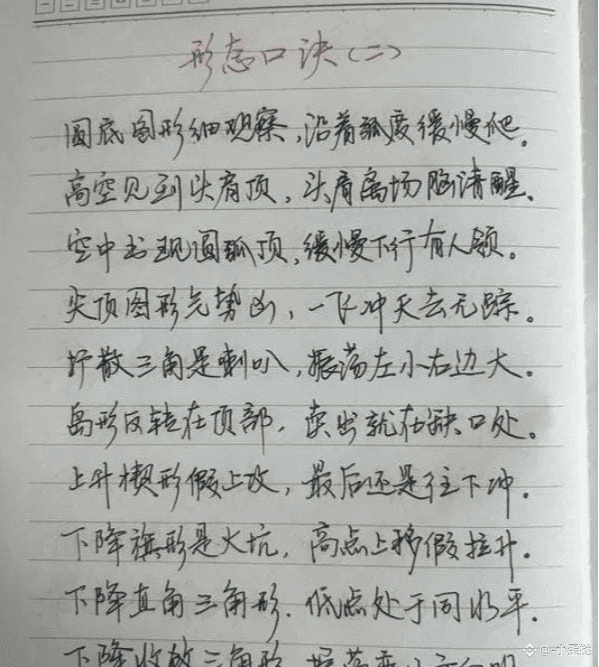 形态口诀(二)
圆底图形细观察,沿着弧度缓慢爬。
高空见到头肩顶,头肩离场脑清醒。
空中出现圆弧顶,缓慢下行有人领。
尖顶图形气势凶,一飞冲天去无踪。
扩散三角是喇叭,振荡左小右边大。
岛形反转在顶部,卖出就在缺口处。
上升楔形假上攻,最后还是往下冲。
下降旗形是火坑,高点上移假拉升。
下降直角三角形.低点处于同水平.
下降收敛三角形
小蛋挞